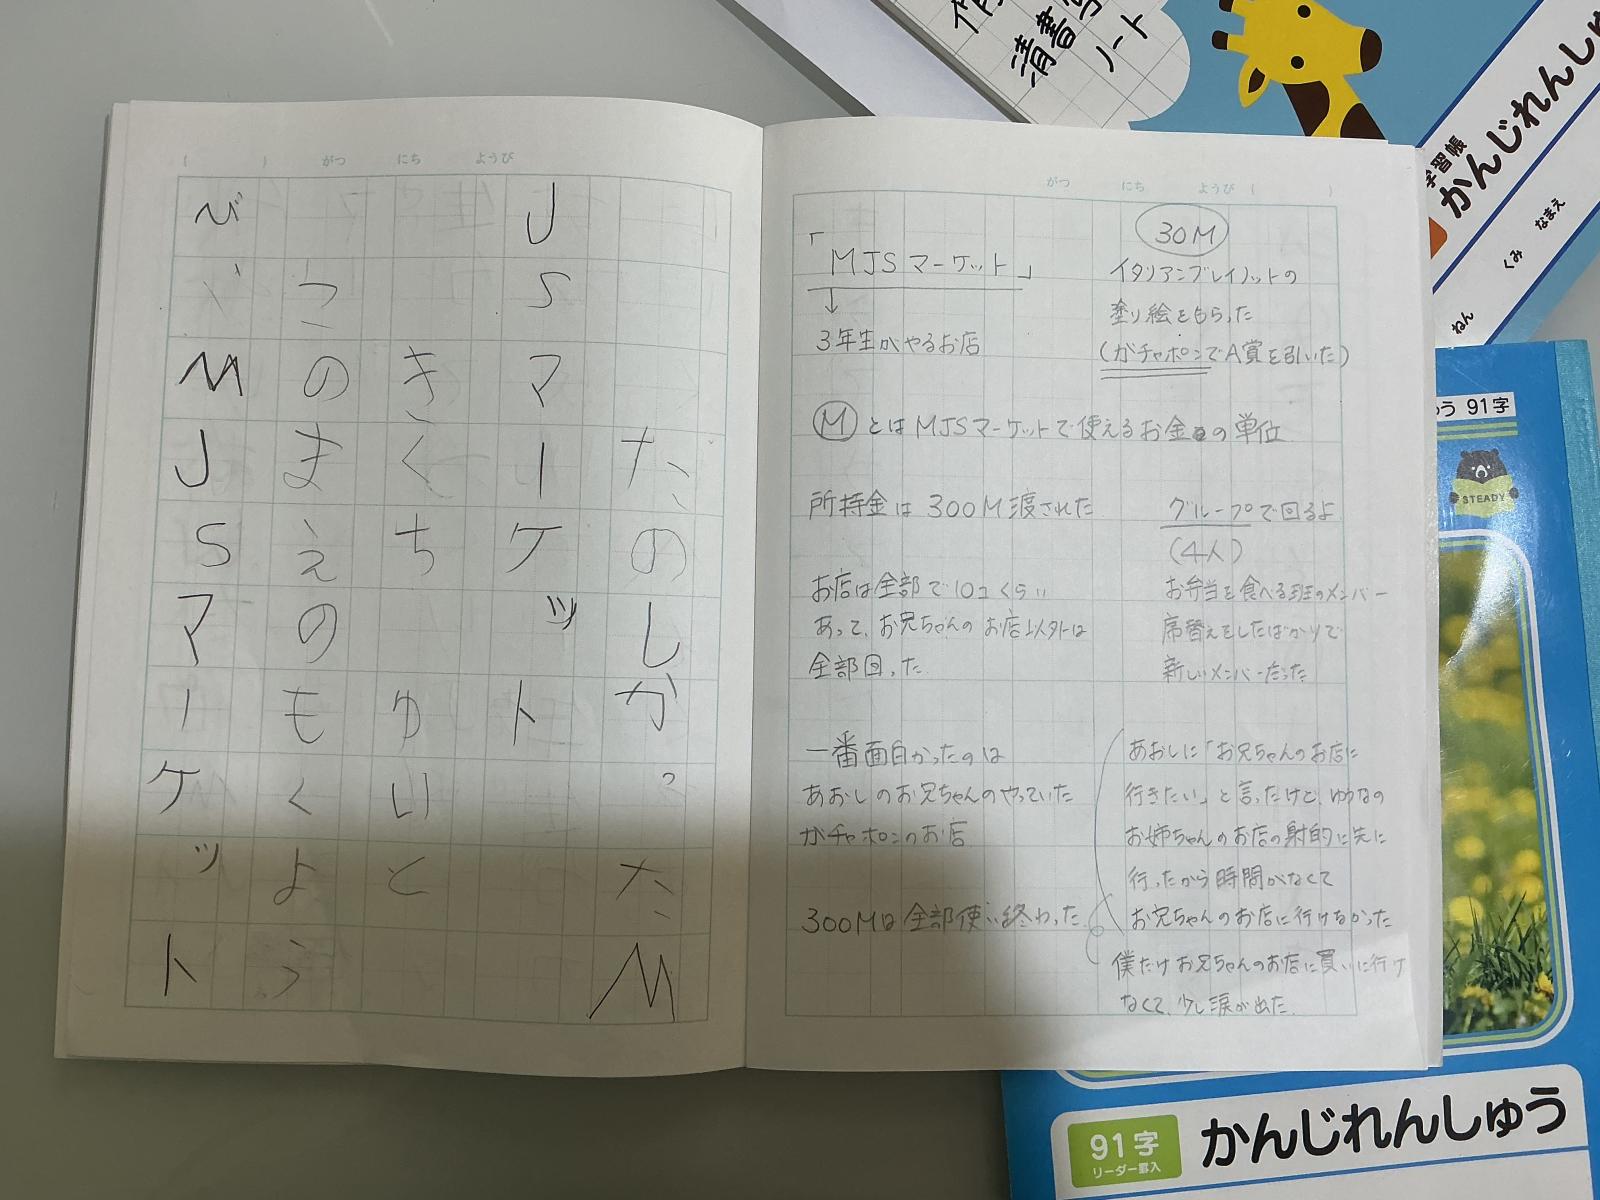 がつ にち ようび
たのしかったM
JSマーケット
きくちゆいと
このまえのもくよう
び、MJSマーケット
がつ にち ようび
「MJSマーケット」
↓
3年生がやるお店
30M
イタリアンブレインロットの
塗り絵をもらった
(ガチャポンでA賞を引いた)
MとはMJSマーケットで使えるお金の単位
所持金は300M渡された
お店は全部で10コくらい
あって、お兄ちゃんのお店以外は
全部回った
一番面白かったのは
あおしのお兄ちゃんのやっていた
ガチャポンのお店
300Mは全部使い終わった
グループで回るよ
(4人)
お弁当を食べる班のメンバー
席替えをしたばかりで
新しいメンバーだった
あおしに「お兄ちゃんのお店に
行きたい」と言ったけど、ゆうなの
お姉ちゃんのお店の射的に先に
行ったから時間がなくて
お兄ちゃんのお店に行けなかった
僕だけお兄ちゃんのお店に買いに行け
なくて、少し涙が出た
清書
ノート
学習帳
かんじれんしゅ
ねん
くみ
なまえ
う 91字
STEADY
91字
リーダー罫入
かんじれんしゅう